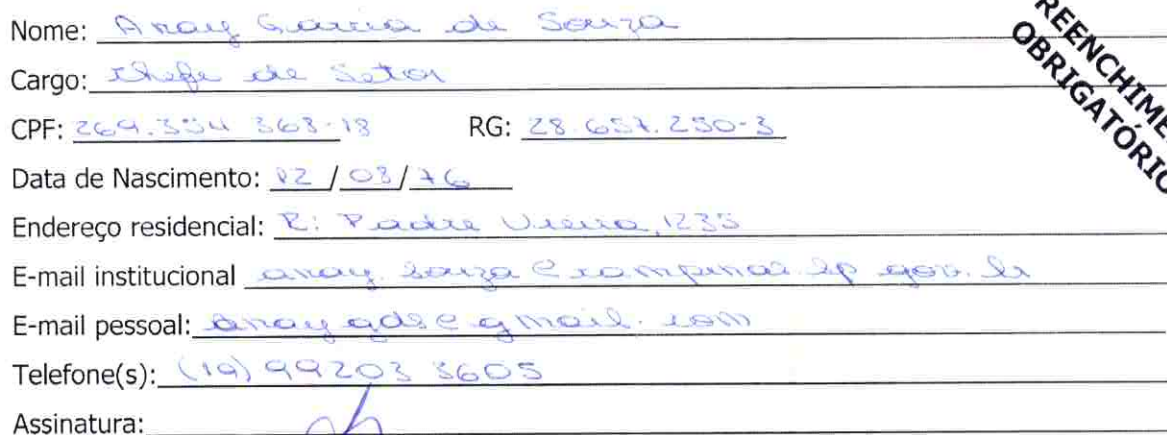 Nome: Anay Garcia de Souza
Cargo: Chefe de Setor
CPF: 269.354 368-18 RG: 28.657.250-3
Data de Nascimento: 12 / 03 / 76
Endereço residencial: R: Padre Vieira, 1235
E-mail institucional anay.souza@campinas.sp.gov.br
E-mail pessoal: anaygds@gmail.com
Telefone(s): (19) 99203 3605
Assinatura:
OBRIGATÓRIO